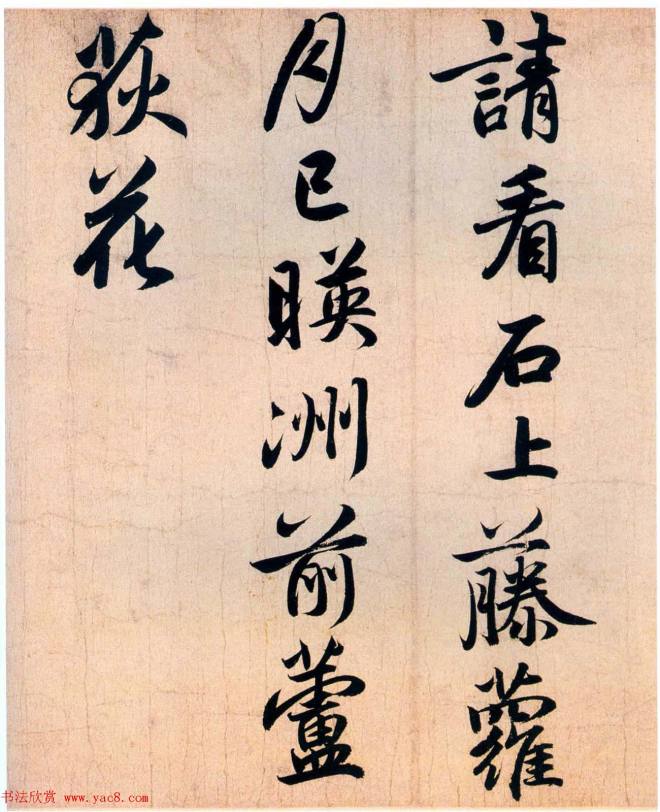 請看石上藤蘿
月已暎洲前蘆
荻花
书法欣赏 www.yac8.com